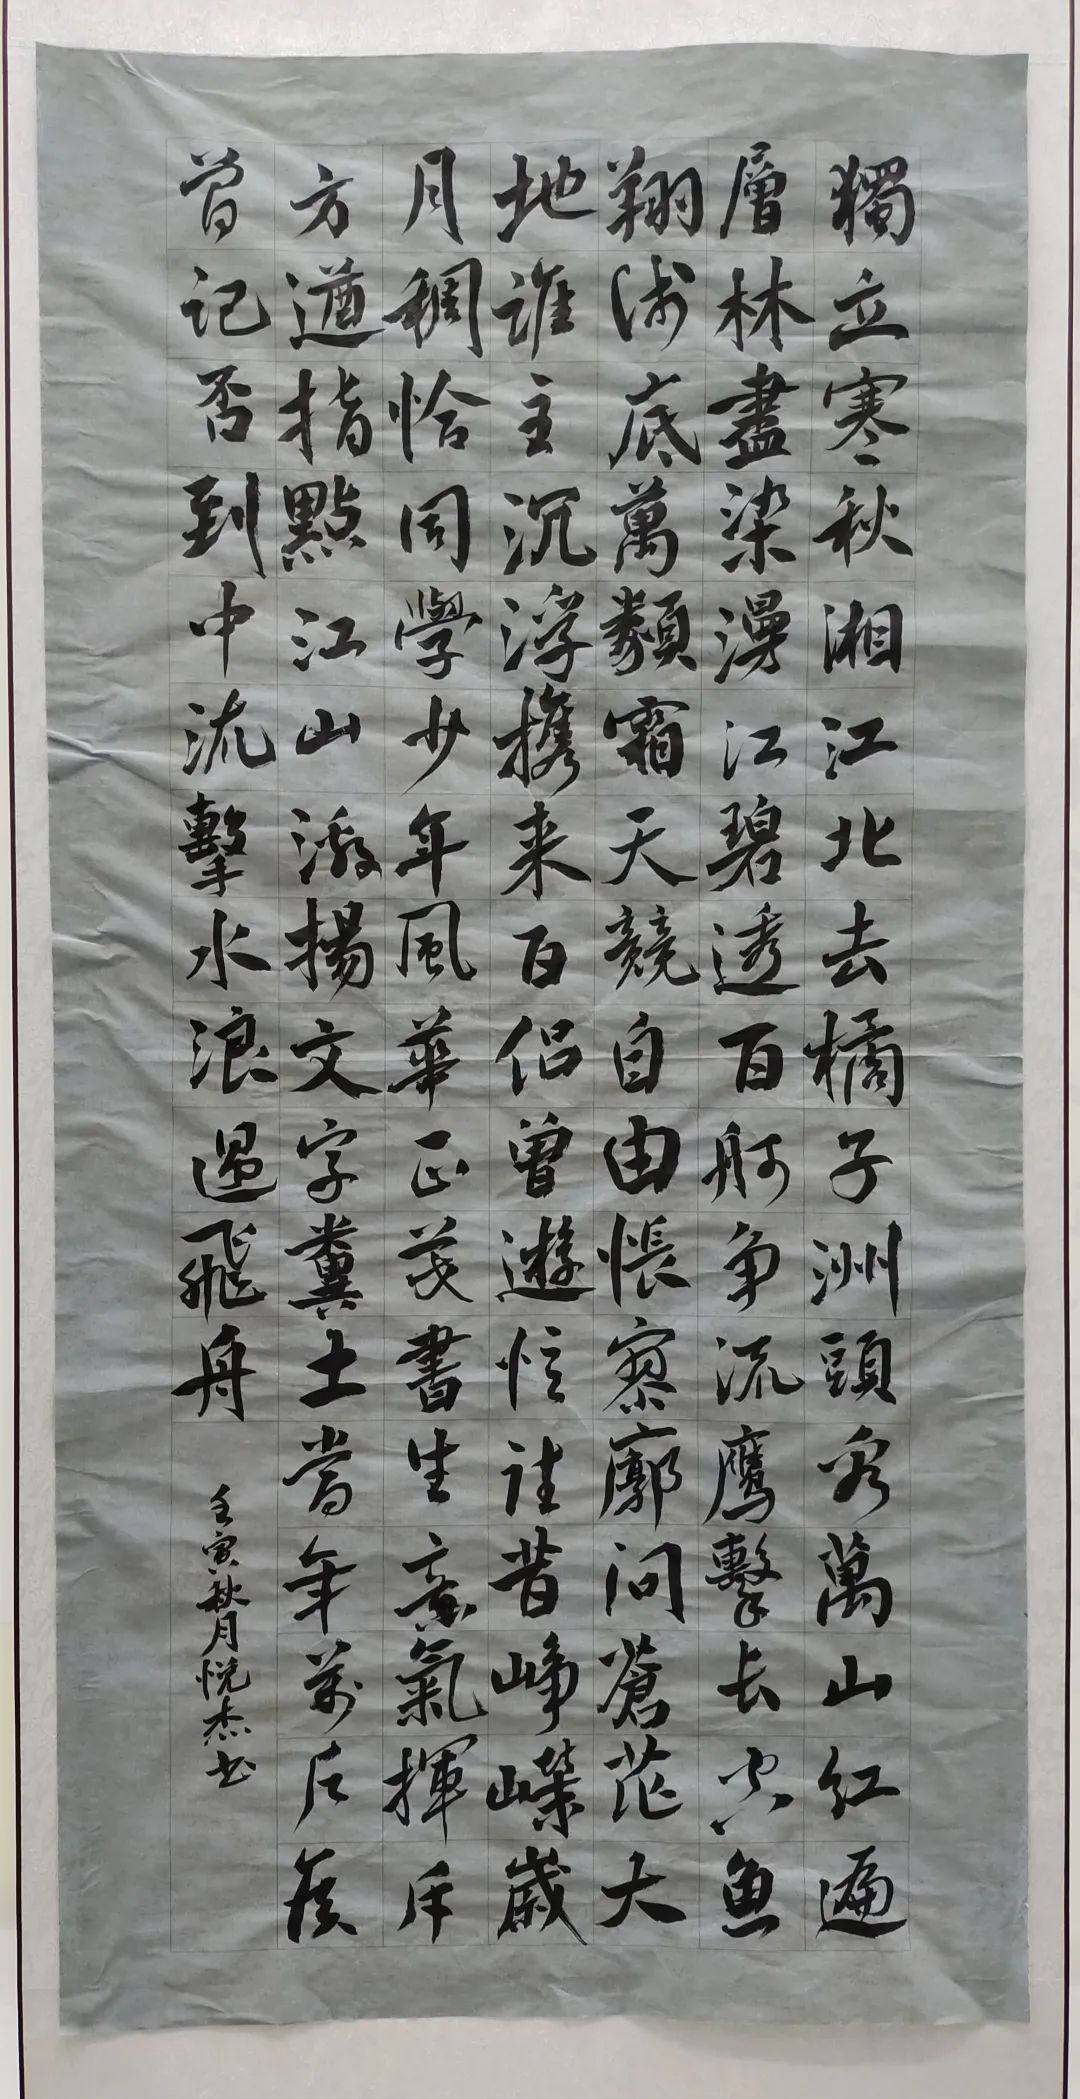 獨立寒秋湘江北去橘子洲頭看萬山紅遍
層林盡染漫江碧透百舸争流鷹擊长空魚
翔浅底萬類霜天競自由悵寥廓问蒼茫大
地誰主沉浮携来百侣曾遊憶往昔峥嶸歲
月稠恰同學少年風華正茂書生意氣揮斥
方遒指點江山激揚文字糞土當年萬户侯
曾记否到中流擊水浪遏飛舟
壬寅秋月悦杰书